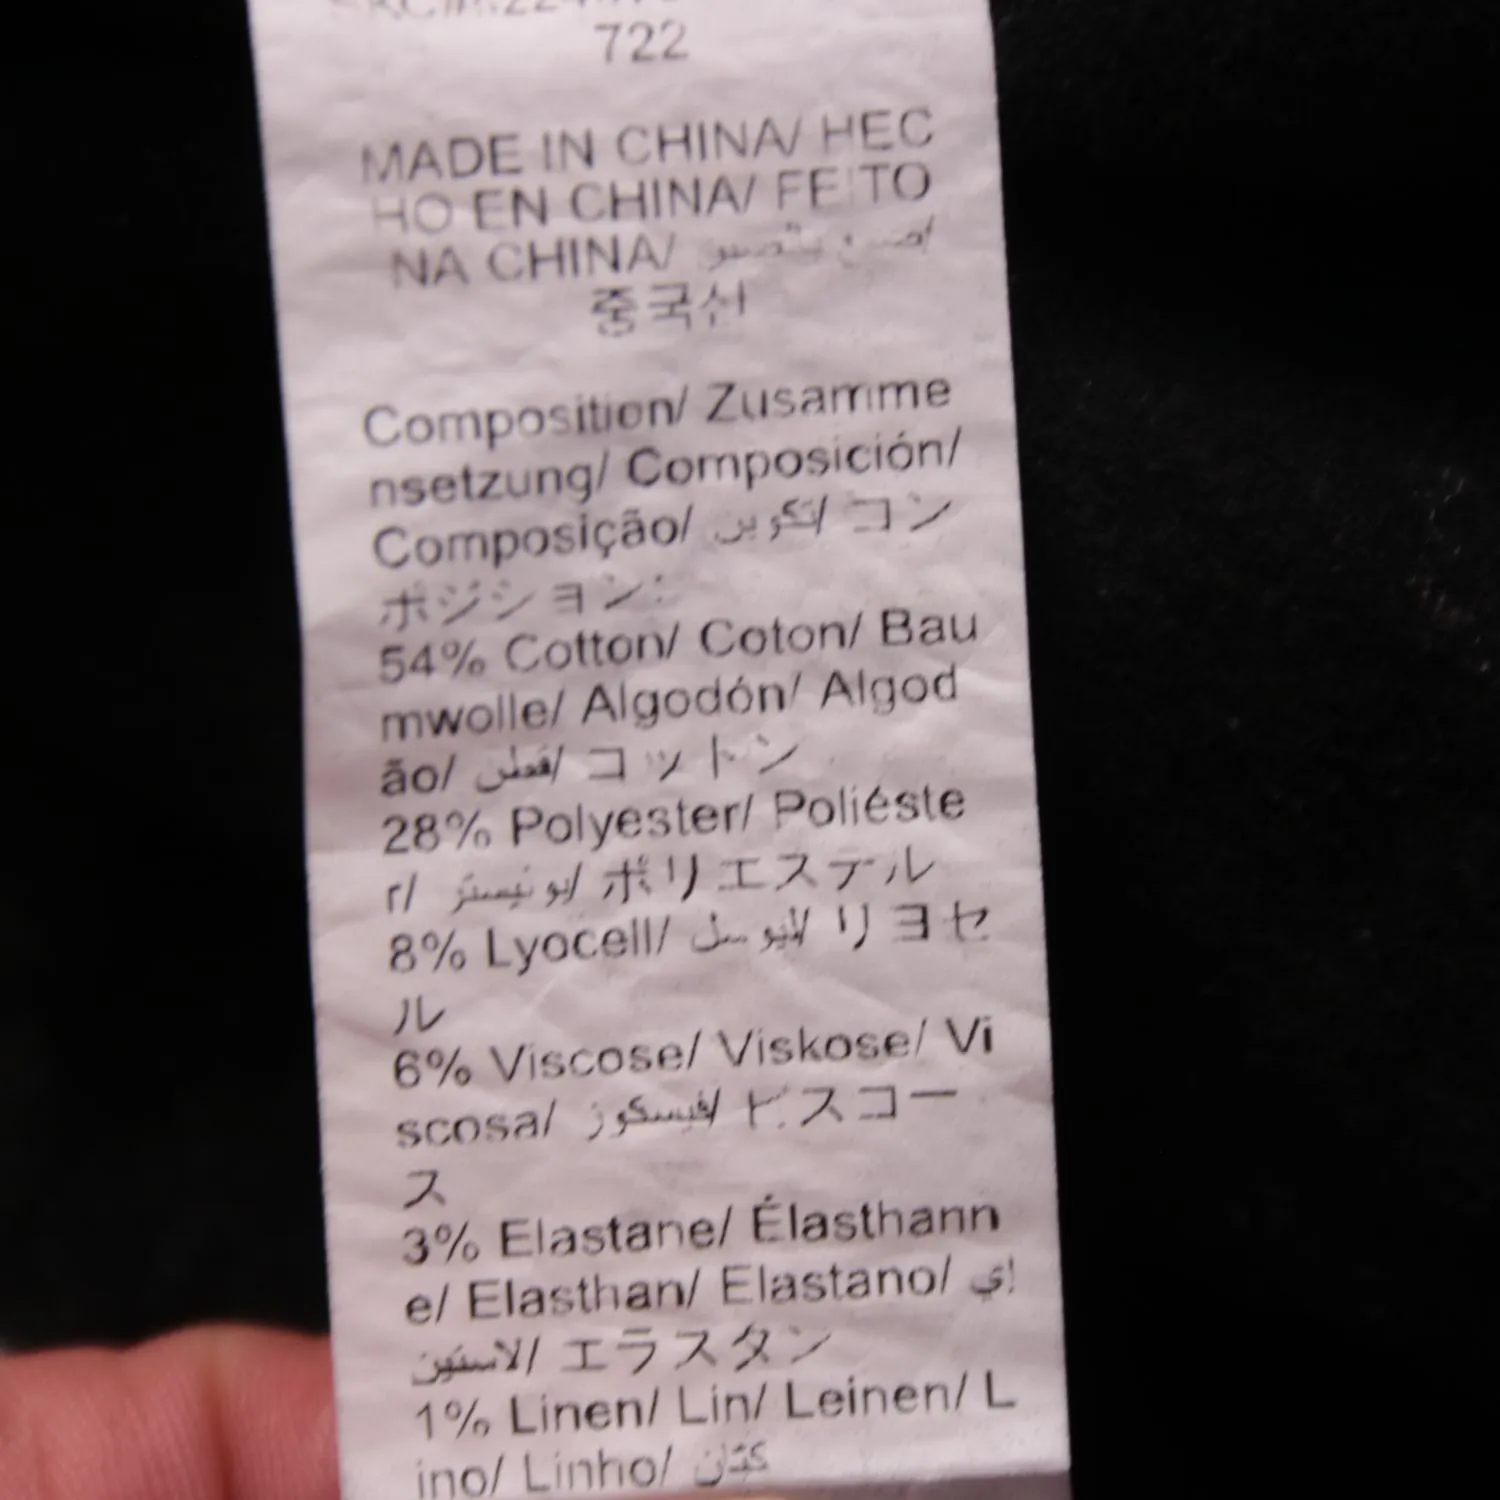 722
MADE IN CHINA/ HEC
HO EN CHINA/ FEITO
NA CHINA/
중국산
Composition/ Zusamme
nsetzung/ Composición/
Composição/ تكوين/ コン
ポジション:
54% Cotton/ Coton/ Bau
mwolle/ Algodón/ Algod
ão/ قطن/ コットン
28% Polyester/ Poliéste
r/ ポリエステル
8% Lyocell/ リヨセ
ル
6% Viscose/ Viskose/ Vi
scosa/ فيسكوز/ ビスコー
ス
3% Elastane/ Élasthann
e/ Elasthan/ Elastano/
エラスタン
1% Linen/ Lin/ Leinen/ L
ino/ Linho/ كتان